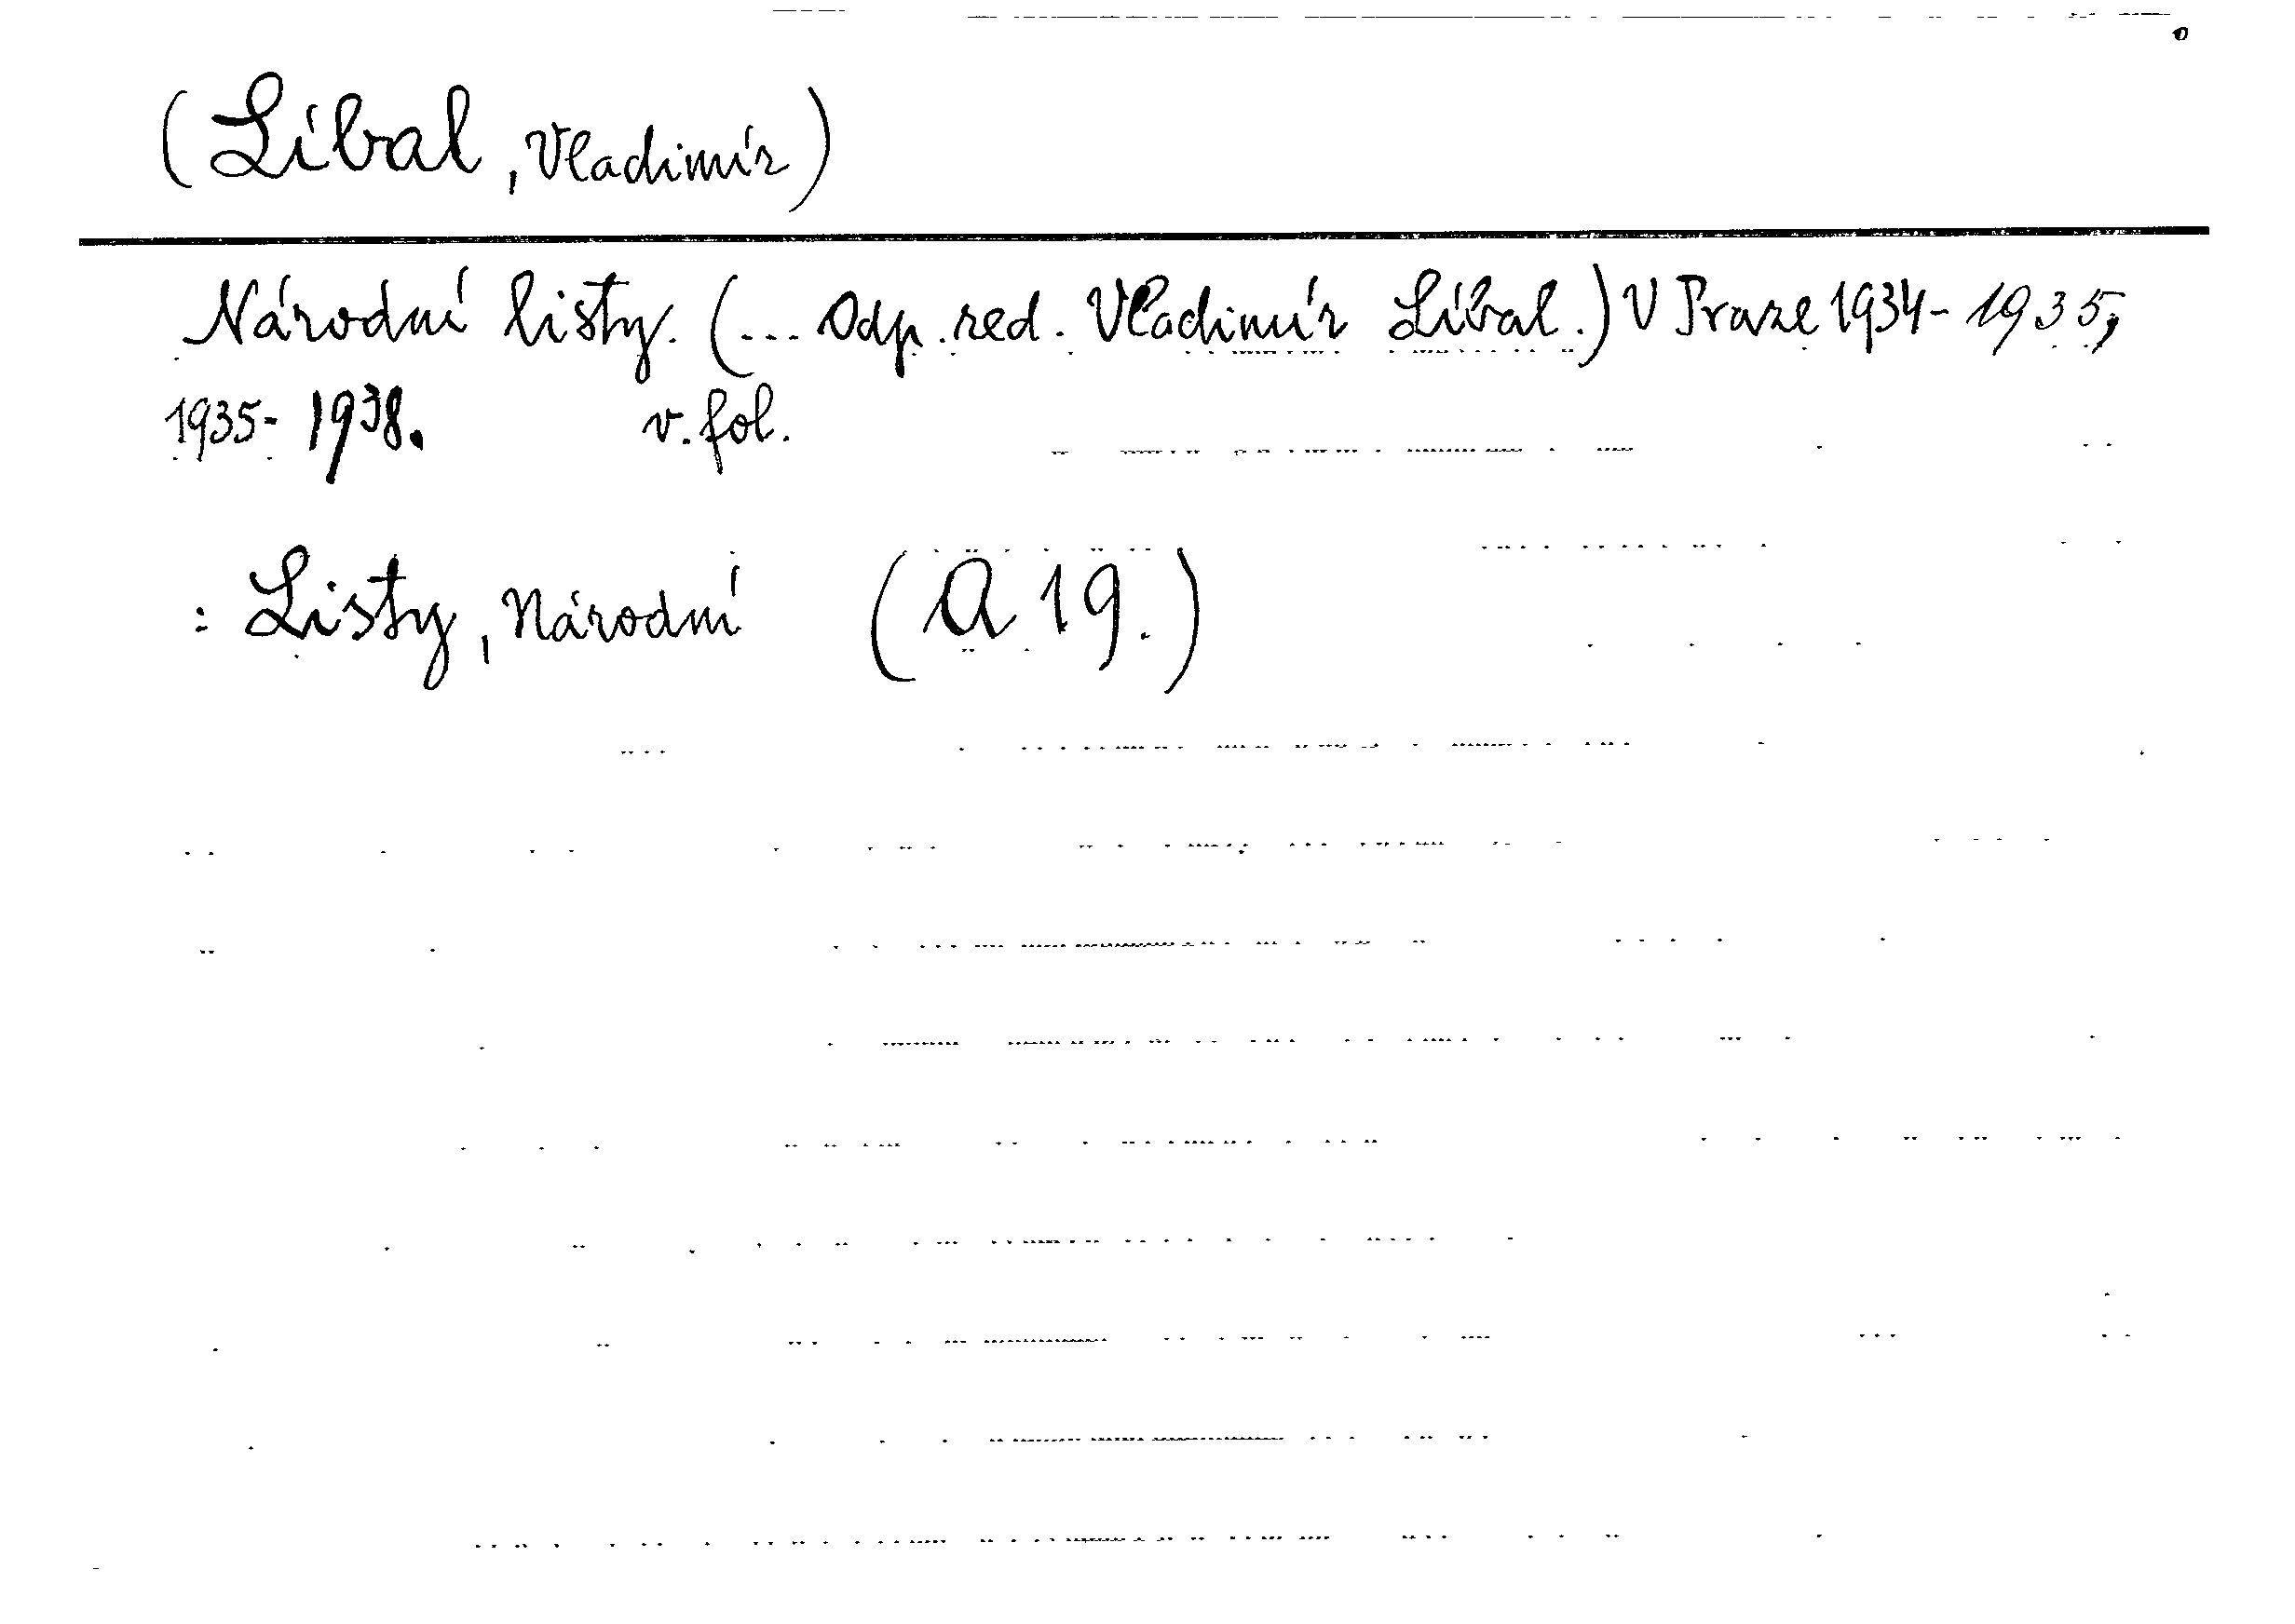 (Líbal, Vladimír)
Národní listy. (... Odp. red. Vladimír Líbal.) V Praze 1934- 1935,
1935- 1938. v. fol.
: Listy, Národní (A 19.)